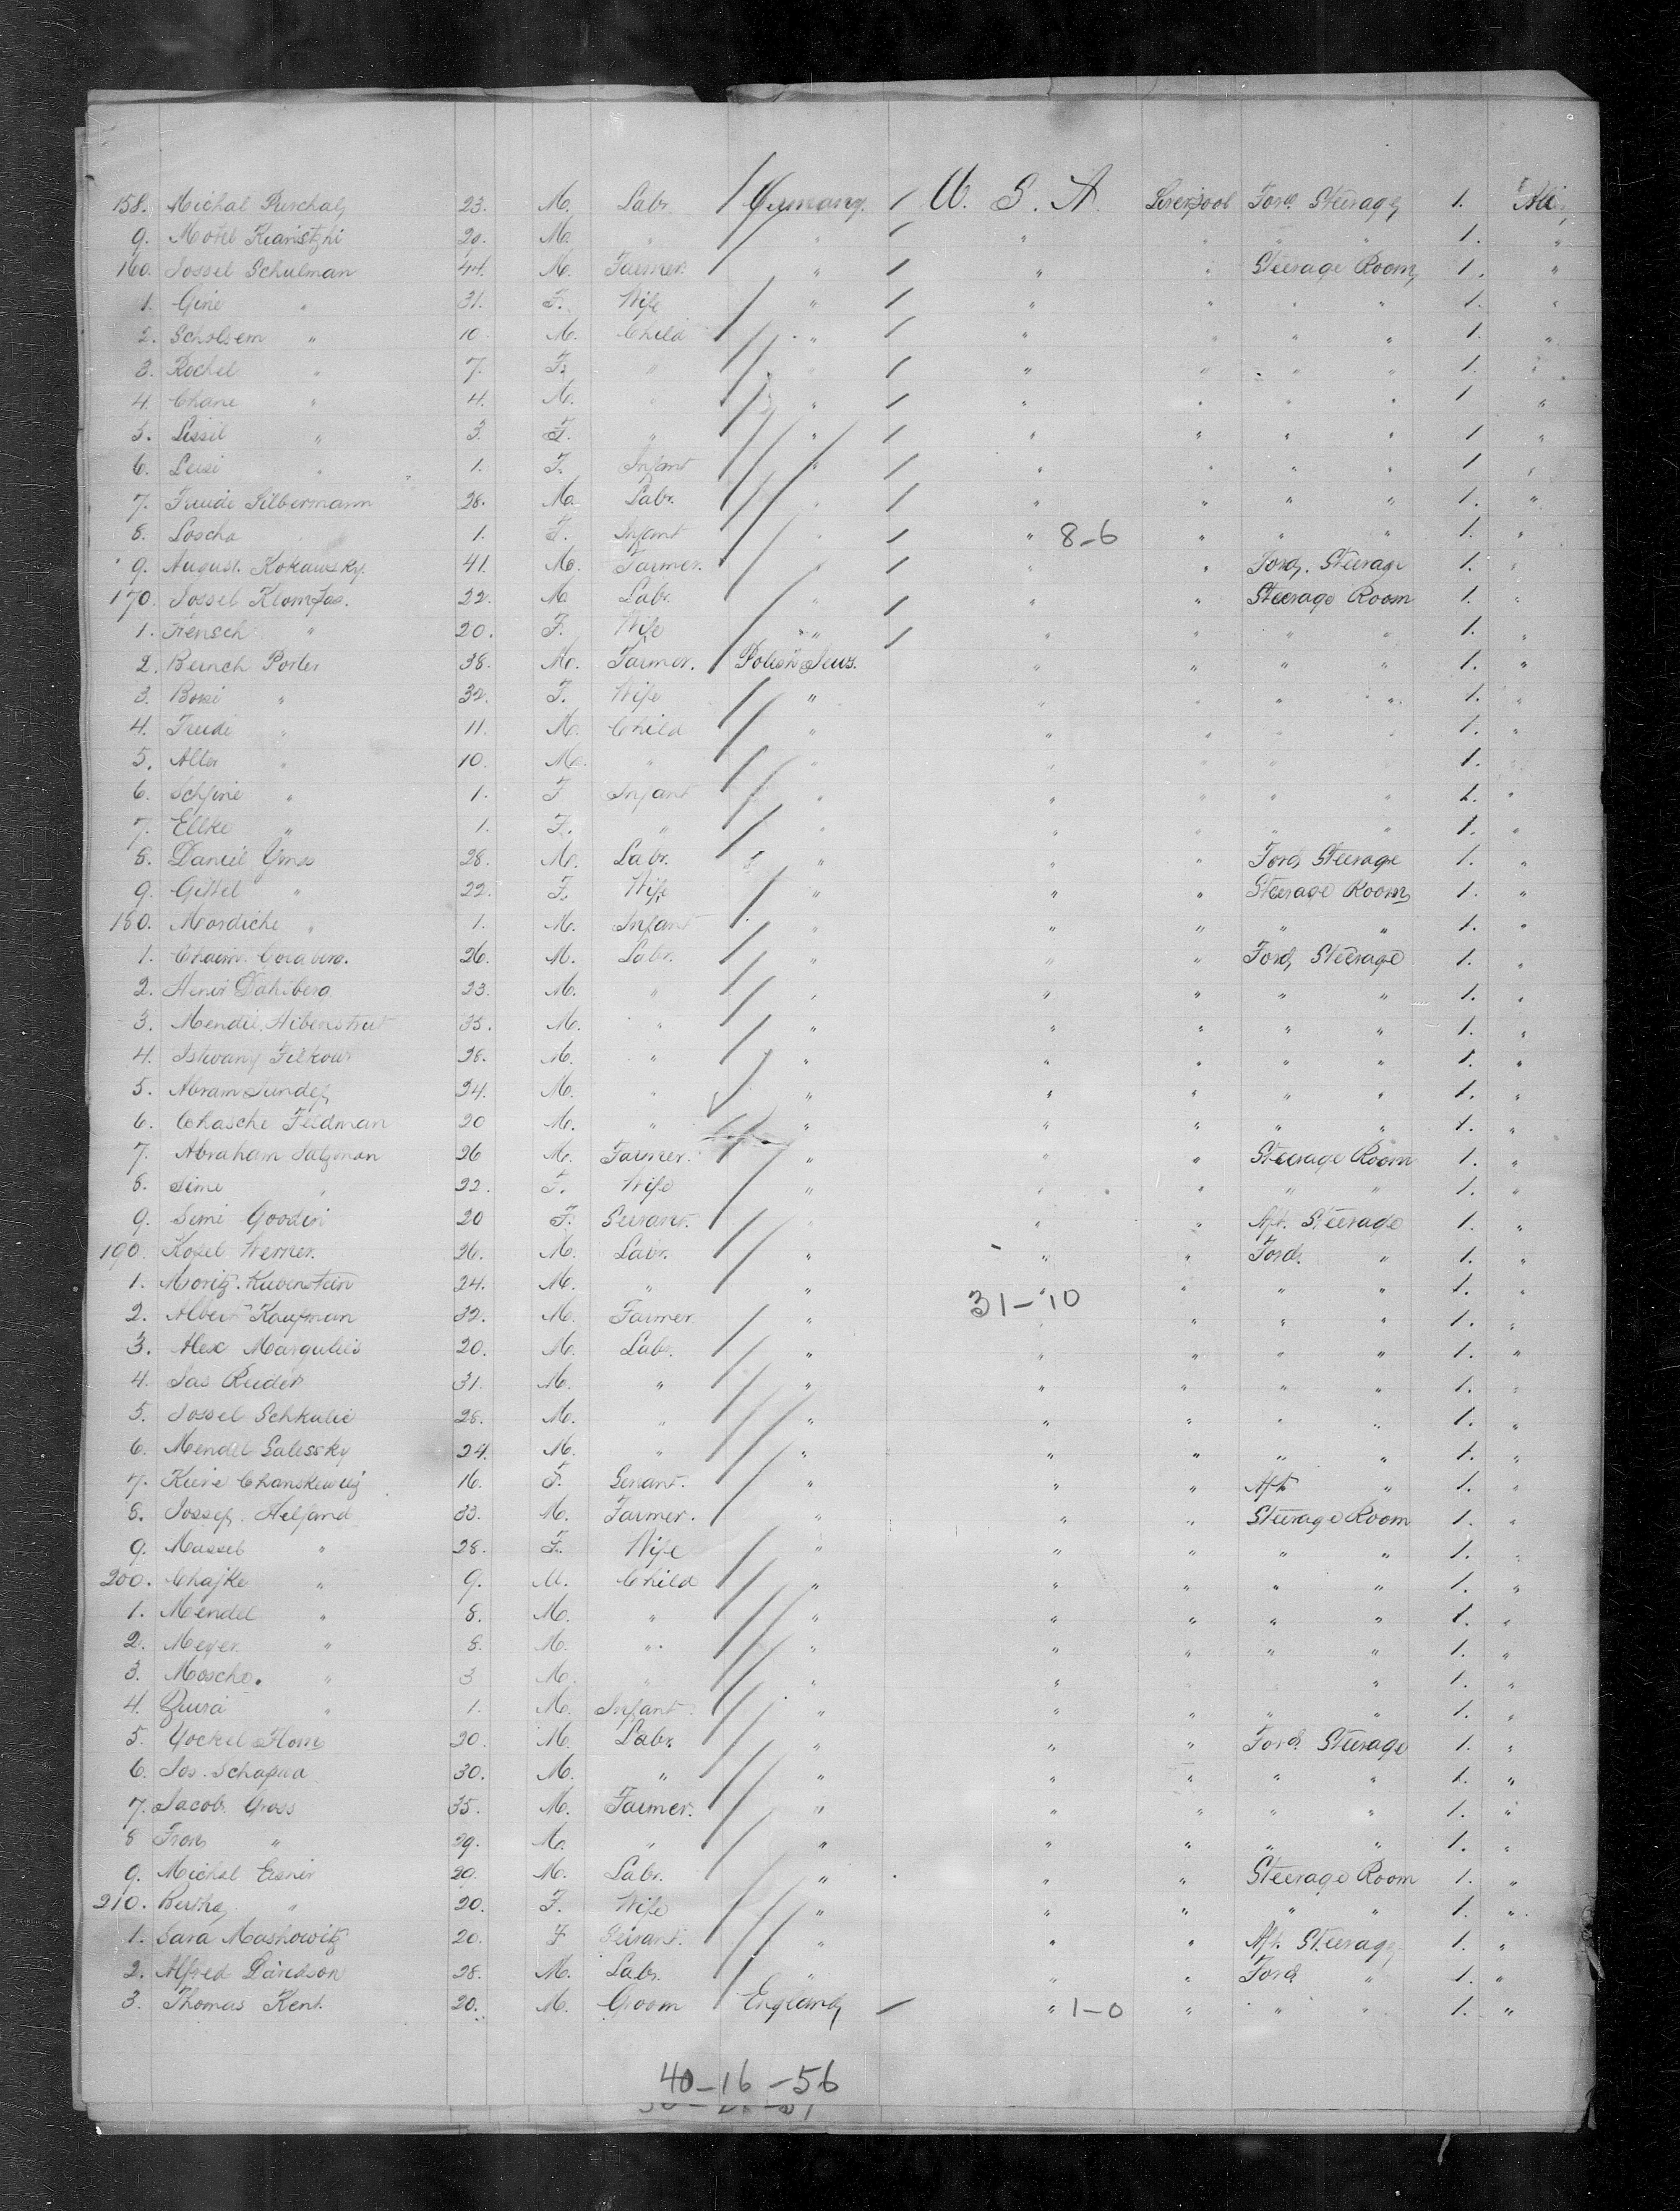 158. Michal Purchal 23. M. Labr. Germany. U. S. A. Liverpool Ford. Steerage 1.
9. Motel 20. M. " " " " " " 1. "
160. Jossel Schulman 44. M. Farmer. " " " Steerage Room 1. "
1. Gine " 31. F. Wife " " " " " 1. "
2. Scholsem " 10. M. Child " " " " " 1. "
3. Rochel " 7. F. " " " " " " 1. "
4. Chane " 4. M. " " " " " " 1 "
5. Lissil " 3. F. " " " " " " 1 "
6. Leisi " 1. F. Infant " " " " " 1 "
7. Silbermann 28. M. Labr. " " " " " 1. "
8. Soscha 1. F. Infant " " 8-6 " " " 1. "
9. August Kokawsky. 41. M. Farmer. " " " Ford. Steerage 1. "
170. Jossel 22. M Labr. " " " Steerage Room 1. "
1. Hensch " 20. F. Wife " " " " " 1. "
2. Beinch Porter 38. M. Farmer. Polish Jews. " " " " 1. "
3. " 32. F. Wife " " " " " 1. "
4. " 11. M. Child " " " " " 1. "
5. Alter " 10. M. " " " " " 1.
6. Schfine " 1. F Infant " " " " " 1. "
7. Elike " 1. F. " " " " " " 1. "
8. Daniel 28. M. Labr. " " " Ford Steerage 1. "
9. Gittel " 22. F. Wife " " " Steerage Room 1. "
180. Mordiche " 1. M. Infant " " " " " 1. "
1. Chaim Goldberg. 26. M. Labr. " " " Ford Steerage 1. "
2. Dahlberg 23. M. " " " " " " 1. "
3. Mendel 35. M. " " " " " " 1. "
4. 28. M. " " " " " " 1. "
5. Abram 24. M. " " " " " " 1. "
6. Chasche Feldman 20 M. " " " " " " 1. "
7. Abraham Salzman 26 M. Farmer. " " " Steerage Room 1. "
8. Sime " 22. F. Wife " " " " " 1. "
9. Simi Goodin 20 F. Servant. " " " Aft. Steerage 1. "
190. Kosel Werner. 26. M. Labr. " " " Ford. " 1. "
1. Moritz. Rubenstein 24. M. " " " " " " 1. "
2. Albert Kaufman 32. M. Farmer " 31-10 " " " 1. "
3. Alex Margulies 20. M. Labr. " " " " " 1. "
4. Jas Ruder 31. M. " " " " " " 1. "
5. Jossel Schkulie 28. M. " " " " " " 1. "
6. Mendel Salessky 24. M. " " " " " " 1. "
7. 16. F. Servant. " " " Aft " 1. "
8. Jossef. Helfand 33. M. Farmer. " " " Steerage Room 1. "
9. Massel " 28. F. Wife " " " " " 1. "
200. Chajke " 9. M. Child " " " " " 1. "
1. Mendel " 8. M. " " " " " " 1. "
2. Meyer. " 8. M. " " " " " " 1. "
3. Moscho. " 3 M. " " " " 1. "
4. " 1. M. Infant " " " " " 1. "
5. Yockel 20. M. Labr. " " " Ford. Steerage 1. "
6. Jos. Schapira 30. M. " " " " " " 1. "
7. Jacob. Gross 35. M. Farmer. " " " " " 1. "
8 " 29. M. " " " " " " 1. "
9. Michal Eisner 29. M. Labr. " " " Steerage Room 1. "
210. Bertha " 20. F. Wife " " " " " 1. "
1. Sara Mashowitz 20. F Servant. " " " Aft. Steerage 1. "
2. Alfred Davidson 28. M. Labr. " " " Ford " 1. "
3. Thomas Kent. 20. M. Groom England " 1-0 " " " 1. "
40-16-56